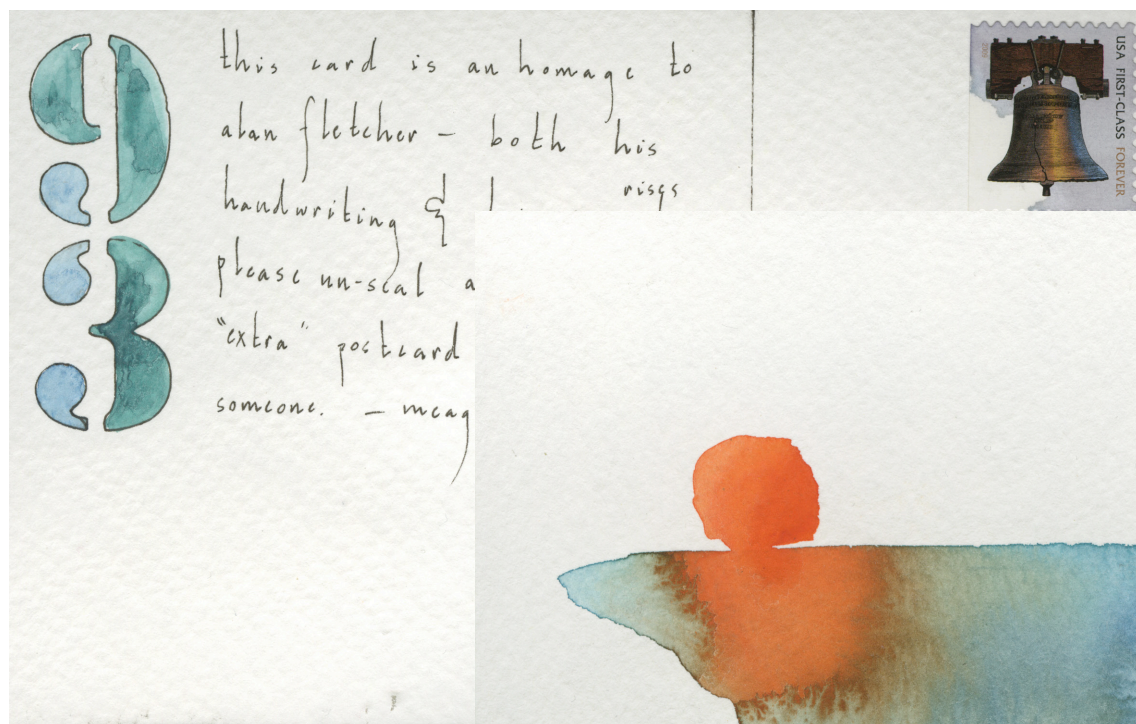 93
this card is an homage to
alan fletcher – both his
handwriting &
please un-seal
"extra" postcard
someone. –
USA FIRST-CLASS FOREVER